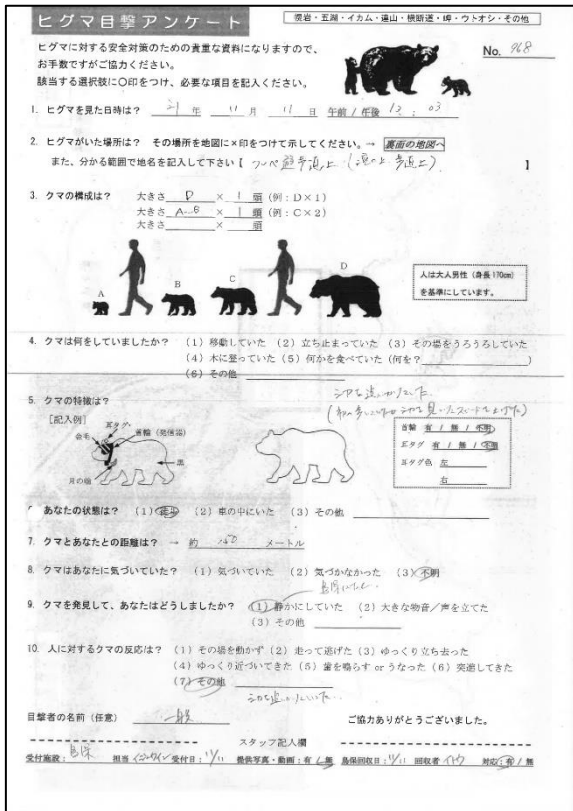 ヒグマ目撃アンケート
湾岩・五湖・イカム・遠山・横断道・岬・ウトオシ・その他
ヒグマに対する安全対策のための貴重な資料になりますので、
お手数ですがご協力ください。
該当する選択肢に○印をつけ、必要な項目を記入ください。
No. 968
1. ヒグマを見た日時は? 21 年 11 月 11 日 午前/午後 12 : 03
2. ヒグマがいた場所は? その場所を地図に×印をつけて示してください。→ 裏面の地図へ
また、分かる範囲で地名を記入して下さい【 フレペ遊歩道上 】
3. クマの構成は? 大きさ D × 1 頭 (例:D×1)
大きさ × 1 頭 (例:C×2)
大きさ × 頭
A B C D
人は大人男性(身長170cm)
を基準にしています。
4. クマは何をしていましたか? (1) 移動していた (2) 立ち止まっていた (3) その場をうろうろしていた
(4) 木に登っていた (5) 何かを食べていた (何を? )
(6) その他
シカを追いかけていた
5. クマの特徴は?
[記入例]
耳タグ
首輪(発信器)
黒
月の輪
首輪 有 / 無 / 不明
耳タグ 有 / 無 / 不明
耳タグ色 左
右
あなたの状態は? (1) 徒歩 (2) 車の中にいた (3) その他
7. クマとあなたとの距離は? → 約 150 メートル
8. クマはあなたに気づいていた? (1) 気づいていた (2) 気づかなかった (3) 不明
9. クマを発見して、あなたはどうしましたか? (1) 静かにしていた (2) 大きな物音/声を立てた
(3) その他
10. 人に対するクマの反応は? (1) その場を動かず (2) 走って逃げた (3) ゆっくり立ち去った
(4) ゆっくり近づいてきた (5) 歯を鳴らす or うなった (6) 突進してきた
(7) その他
シカを追いかけていた
目撃者の名前(任意) 一般
ご協力ありがとうございました。
スタッフ記入欄
受付施設: 鳥保 担当 受付日: 11/11 提供写真・動画:有/無 鳥保回収日: 11/11 回収者 イトウ 対応:有/無